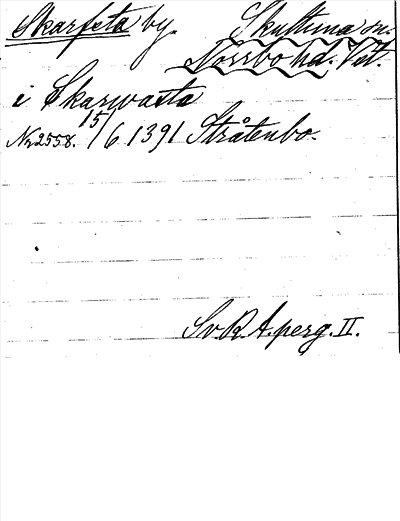 Skarfsta by. Skultuna sn.
Norrbo hd. Vst.
i Skarwasta
Nr 2558. 15/6 1391 Stråtenbo.
Sv. R. A. perg. II.